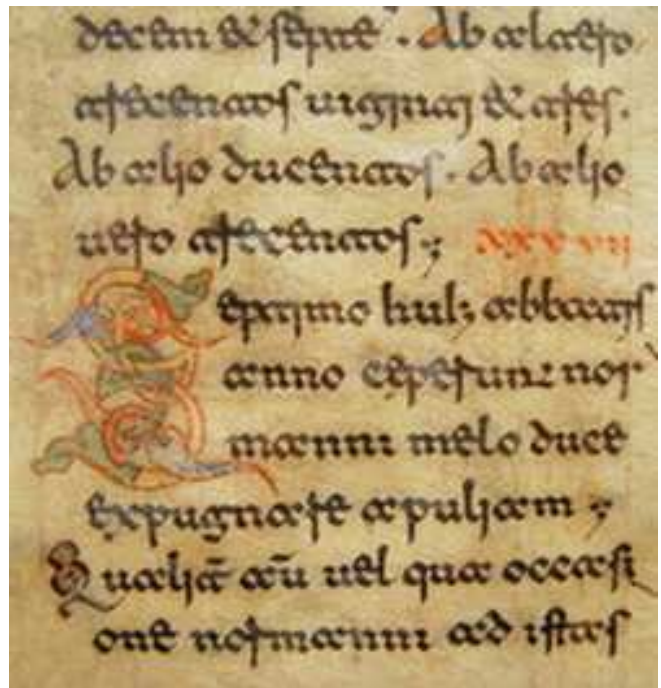 decem & septē. Ab altero
trecentos uiginti & tres.
Ab alio ducentos. Ab alio
uero trecentos; xxxvii
Septimo hui; abbatis
anno ceperunt nor
manni melo duce
expugnare apuliam;
Qualit̄ aū uel qua occasi
one normanni ad istas